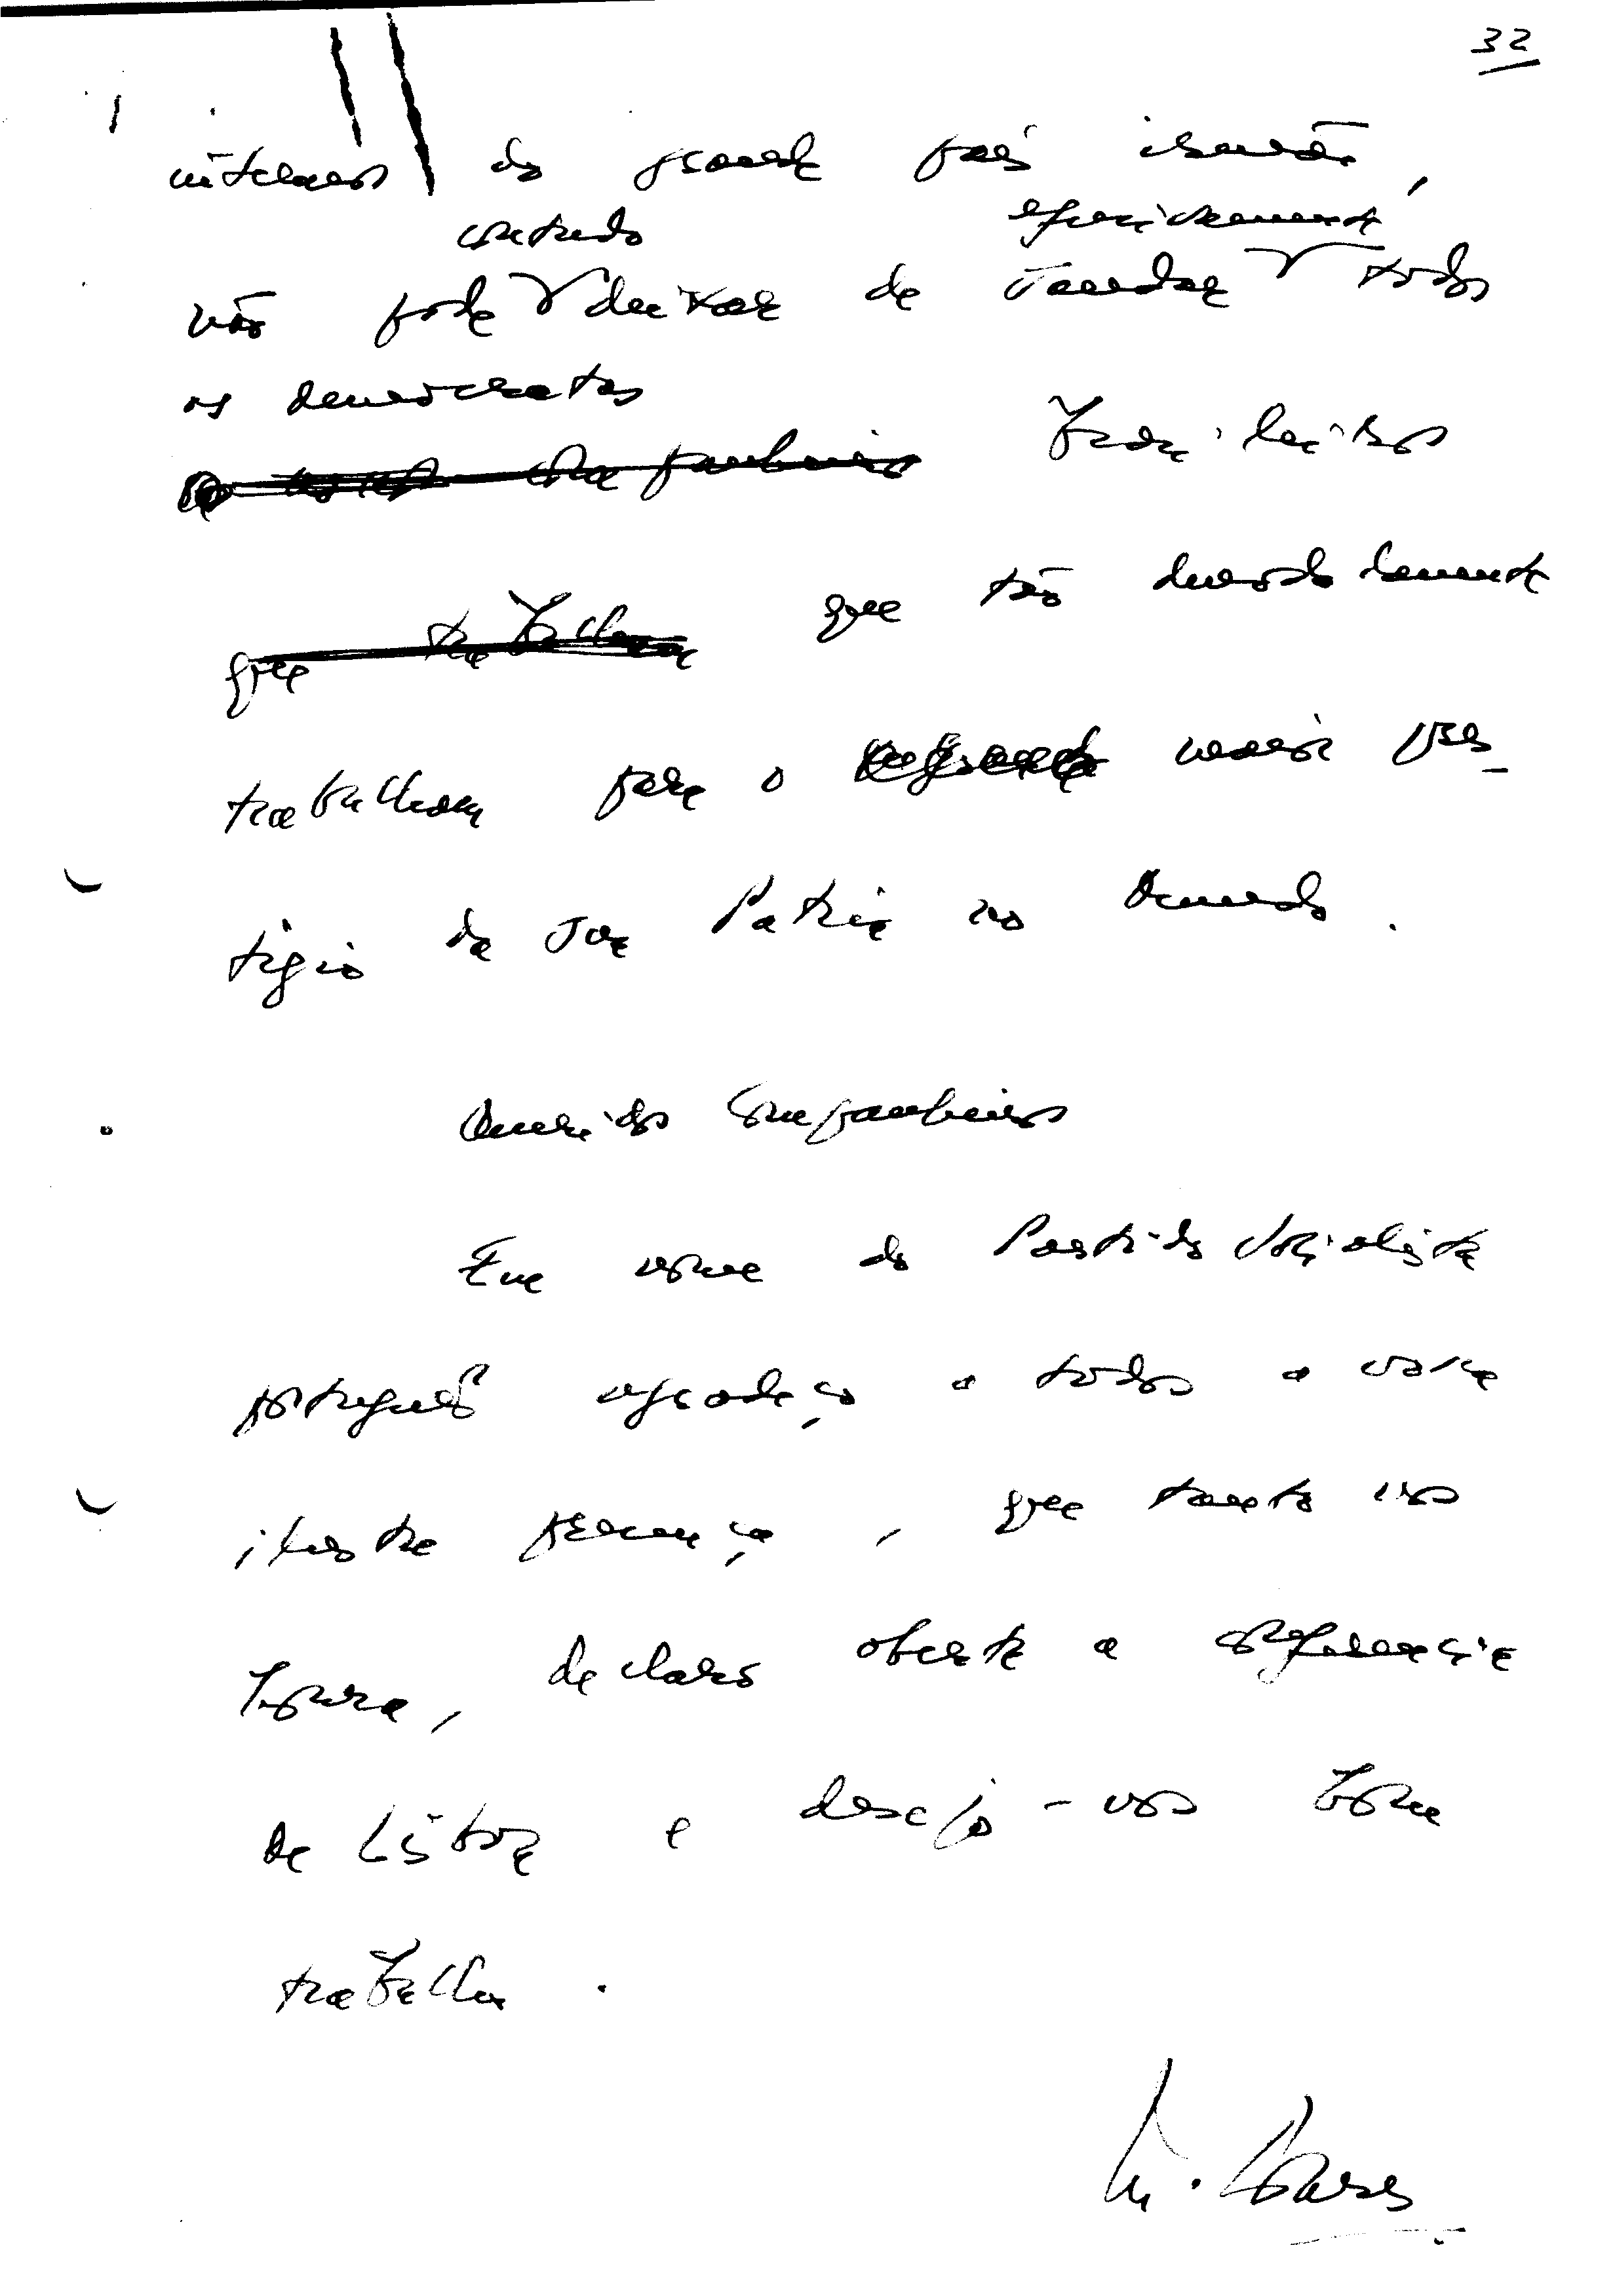 32
internas do grande país irmão,
contudo especialmente
não pode deixar de saudar todos
os democratas
brasileiros
que trabalham que tão devotadamente
trabalham para o maior pres-
tígio da sua Pátria no Mundo.
Queridos Companheiros
Em nome do Partido Socialista
português agradeço a todos a vossa
ilustre presença, que tanto nos
honra, declaro aberta a conferência
de Lisboa e desejo-vos bom
trabalho.
M. Soares